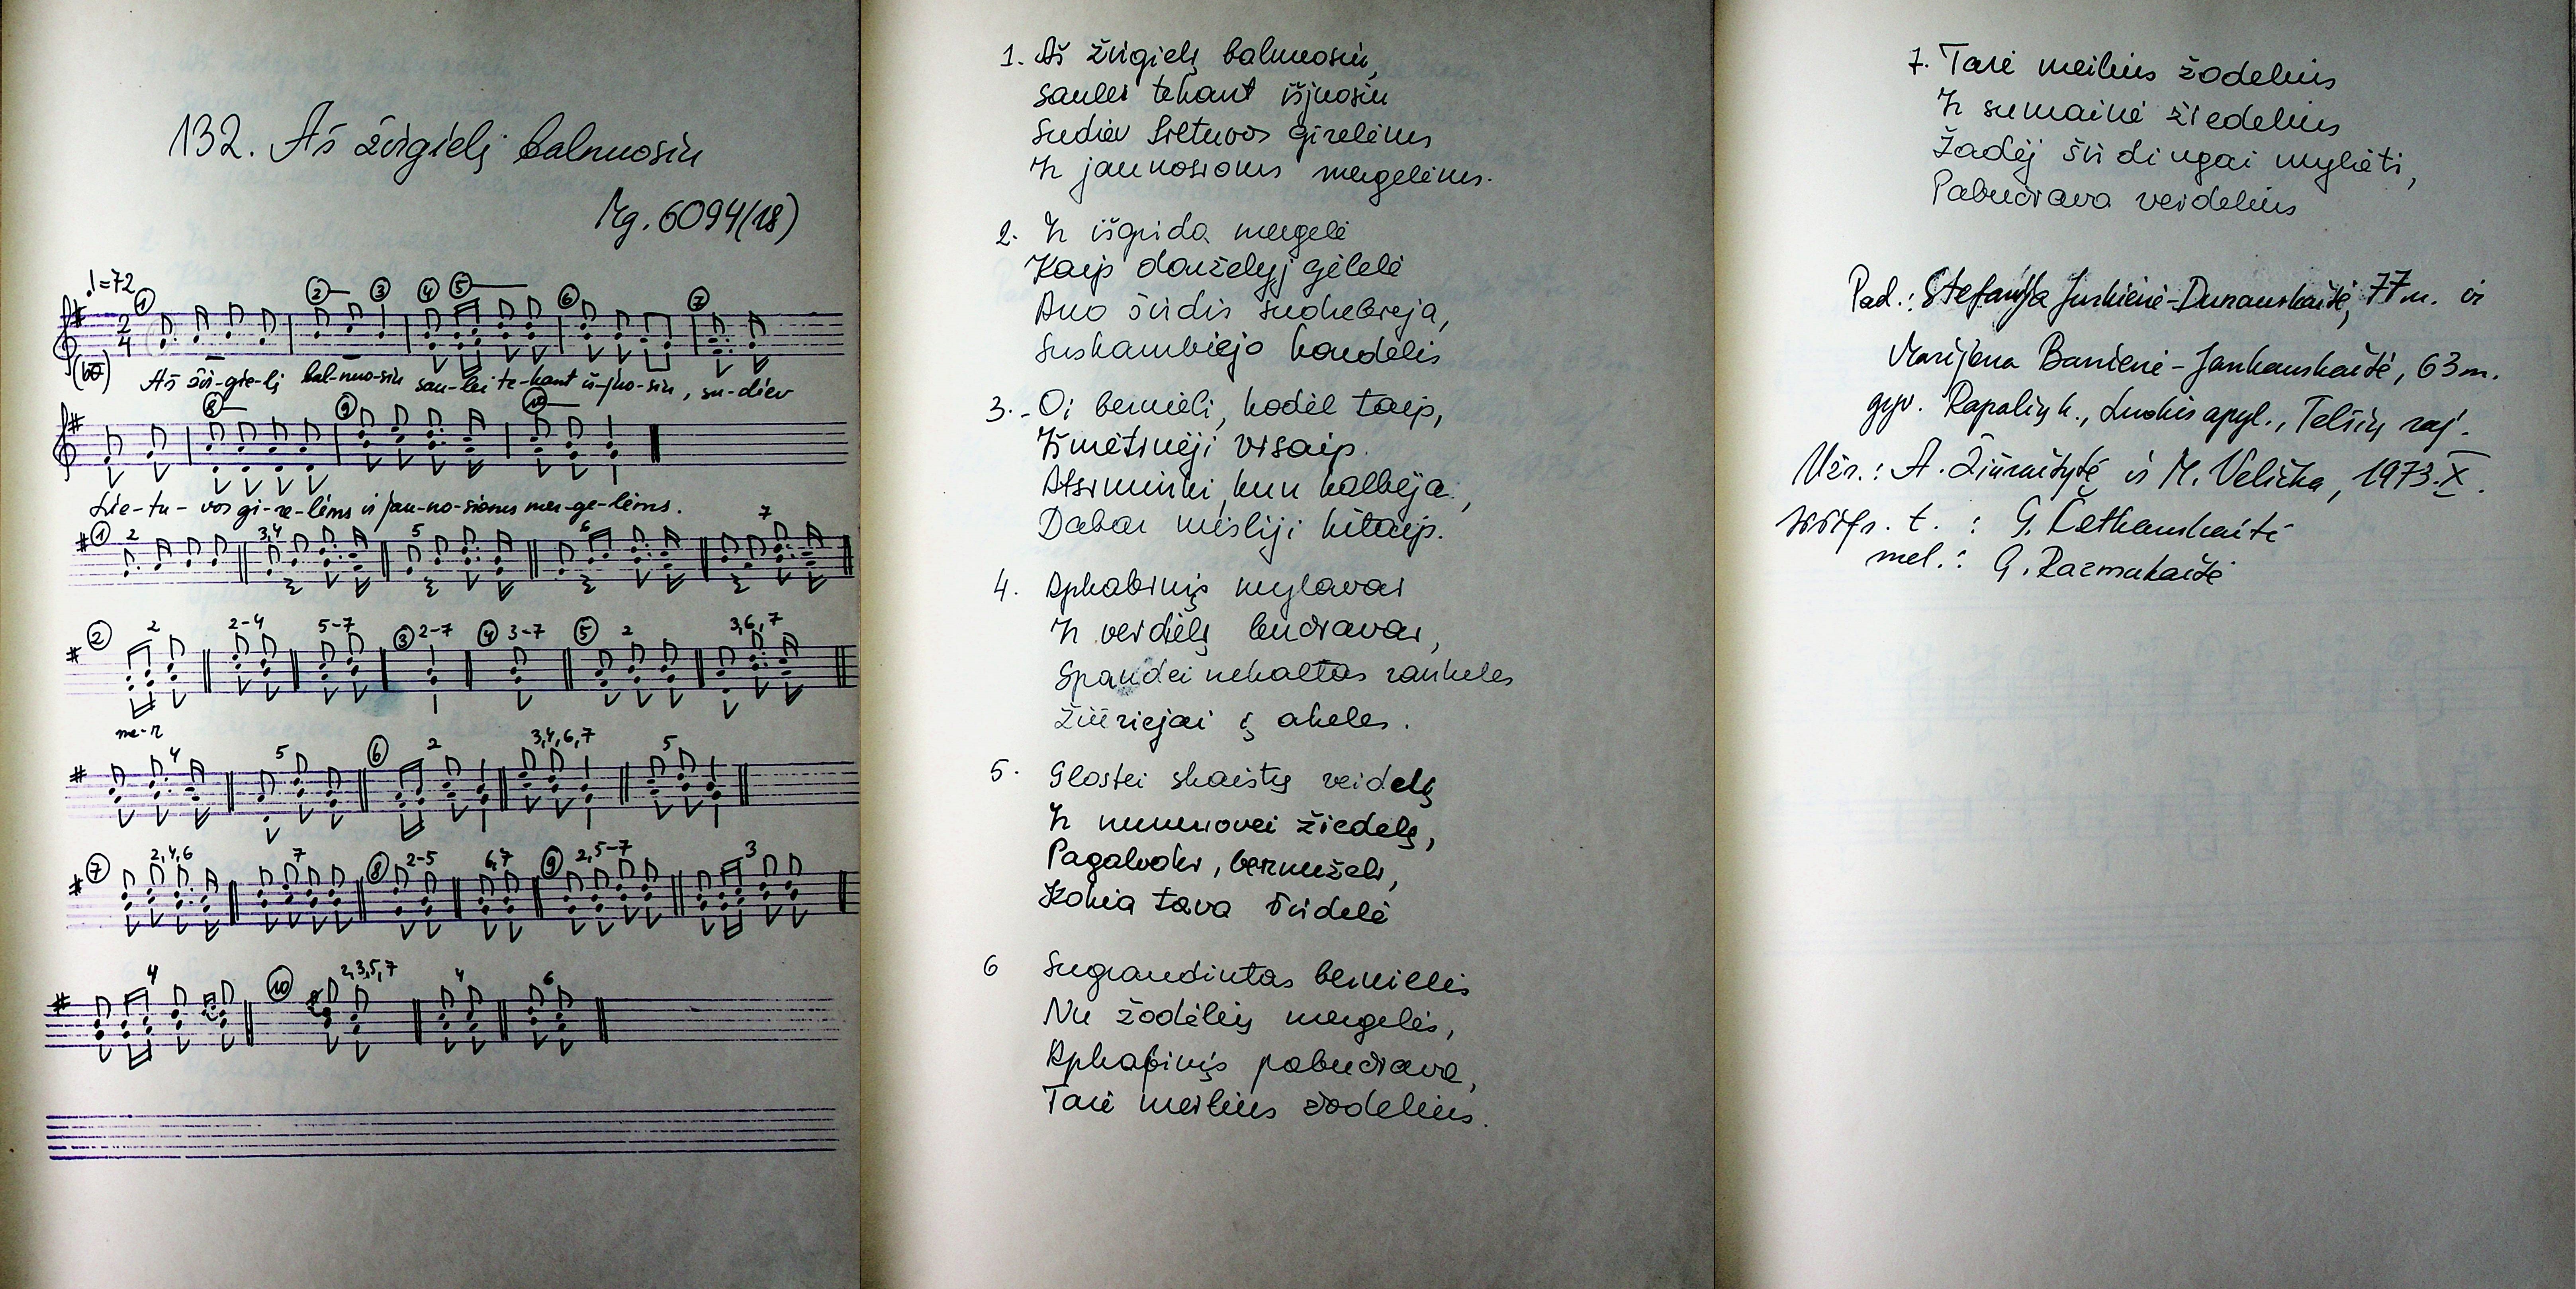 132. Aš žirgielį balnuosiu
Mg. 6094(18)
♩=72
① ②— ③ ④ ⑤— ⑥ ⑦
2
4
Aš žir-gie-lį bal-nuo-siu sau-lei te-kant iš-juo-siu, su-diev
⑧— ⑨ ⑩—
Lie-tu-vos gi-re-lėms ir jau-no-sioms mer-ge-lėms.
① 2 3,4 5 6 7
② 2 2-4 5-7 ③ 2-7 ④ 3-7 ⑤ 2 3,6,7
me-r
4 5 ⑥ 2 3,4,6,7 5
⑦ 2,4,6 7 ⑧ 2-5 6,7 ⑨ 2,5-7 3
4 ⑩ 2,3,5,7 4 6
1. Aš žirgielį balnuosiu,
saulei tekant išjuosiu
Sudiev Lietuvos girelėms
Ir jaunosioms mergelėms.
2. Ir išgirda mergelė
Kaip darželyj gėlelė
Ano širdis sudrebėja,
Suskambiejo kardelis
3. - Oi bernieli, kodėl taip,
Išmėtinėji visaip.
Atsiminki, kun kalbėja,
Dabar misliji kitaip.
4. Apkabinįs mylavai
Ir veidielį bučiavai,
Spaudei nekaltas rankeles
Žiūriejai į akeles.
5. Glostei skaistų veidelį
Ir numovei žiedelį,
Pagalvoki, bernužėli,
Kokia tava širdelė
6 Sugraudintas bernielis
Nu žodėlių mergelės,
Apkabinįs pabučiava,
Tarė meilius žodelius.
7. Tarė meilius žodelius
Ir sumainė žiedelius
Žadėj širdingai mylėti,
Pabučiava veidelius
Pad.: Stefanija Jurkienė-Dunauskaitė, 77 m. ir
Marijona Banienė-Jankauskaitė, 63 m.
gyv. Rapalių k., Luokės apyl., Telšių raj.
Užr.: A. Žiūraitytė ir M. Velička, 1973.X.
Iššifr. t. : G. Četkauskaitė
mel.: G. Razmukaitė